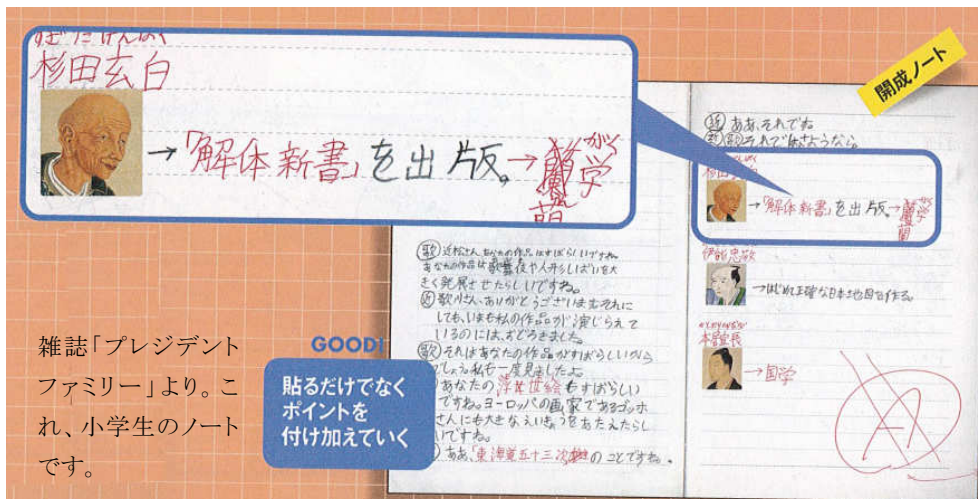 すぎたげんぱく
杉田玄白
→「解体新書」を出版。→蘭学
がく
開成ノート
近 ああ、それでね
杉田玄白
→「解体新書」を出版。→蘭学
伊能忠敬
→はじめて正確な日本地図を作る。
本居宣長
→国学
A1
歌 近松さん、あなたの作品はすばらしいですね。
あなたの作品は歌舞伎や人形しばいを大
きく発展させたらしいですね。
近 歌川さん、ありがとうございます。それに
しても、いまも私の作品が演じられて
いるのには、おどろきました。
歌 それはあなたの作品がすばらしいから
でしょう。私も一度見ましたよ。
あなたの浮世絵もすばらしい
ですね。ヨーロッパの画家であるゴッホ
さんにも大きなえいきょうをあたえたらし
いですね。
ああ、「東海道五十三次」のことですね。
GOOD!
貼るだけでなく
ポイントを
付け加えていく
雑誌「プレジデント
ファミリー」より。こ
れ、小学生のノート
です。